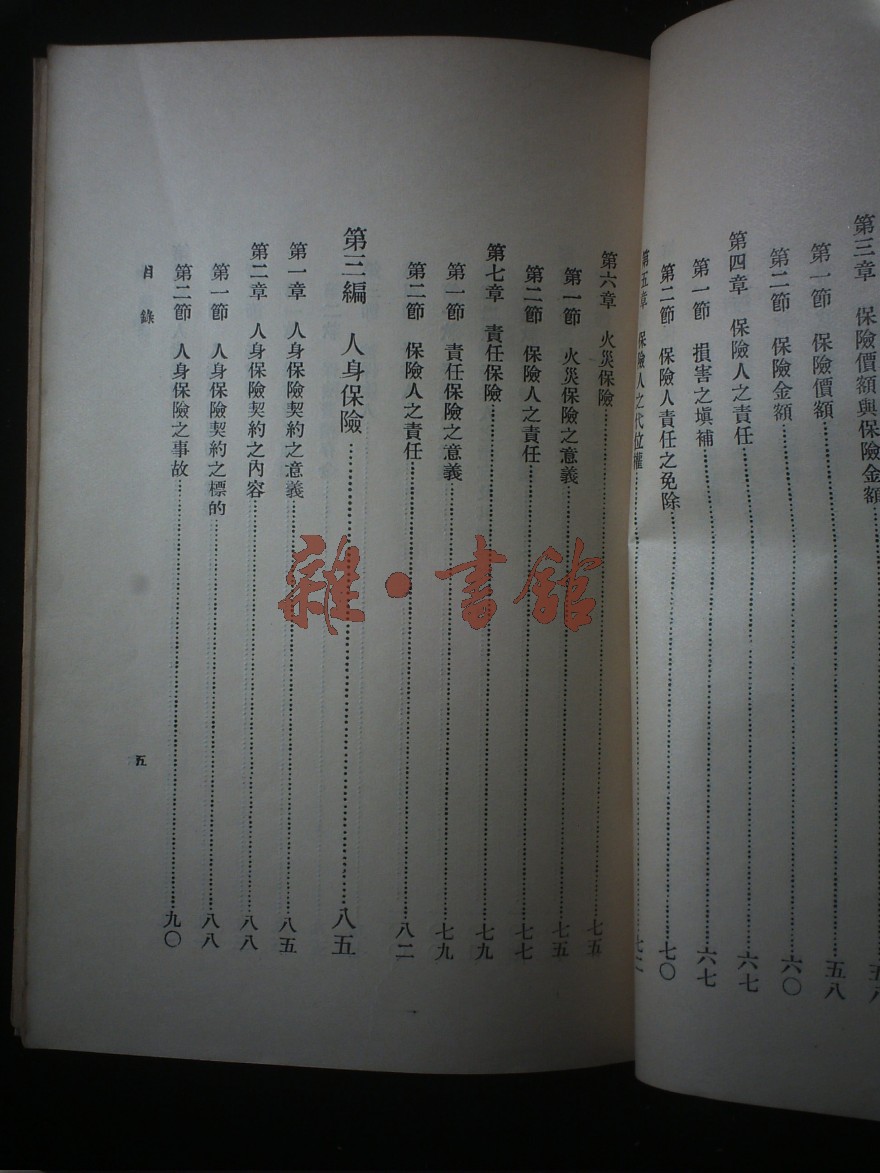 第三章 保險價額與保險金額……五八
第一節 保險價額……五八
第二節 保險金額……六〇
第四章 保險人之責任……六七
第一節 損害之塡補……六七
第二節 保險人責任之免除……七〇
第五章 保險人之代位權……七二
第六章 火災保險……七五
第一節 火災保險之意義……七五
第二節 保險人之責任……七七
第七章 責任保險……七九
第一節 責任保險之意義……七九
第二節 保險人之責任……八二
第三編 人身保險……八五
第一章 人身保險契約之意義……八五
第二章 人身保險契約之內容……八八
第一節 人身保險契約之標的……八八
第二節 人身保險之事故……九〇
目錄
五
雜·書館